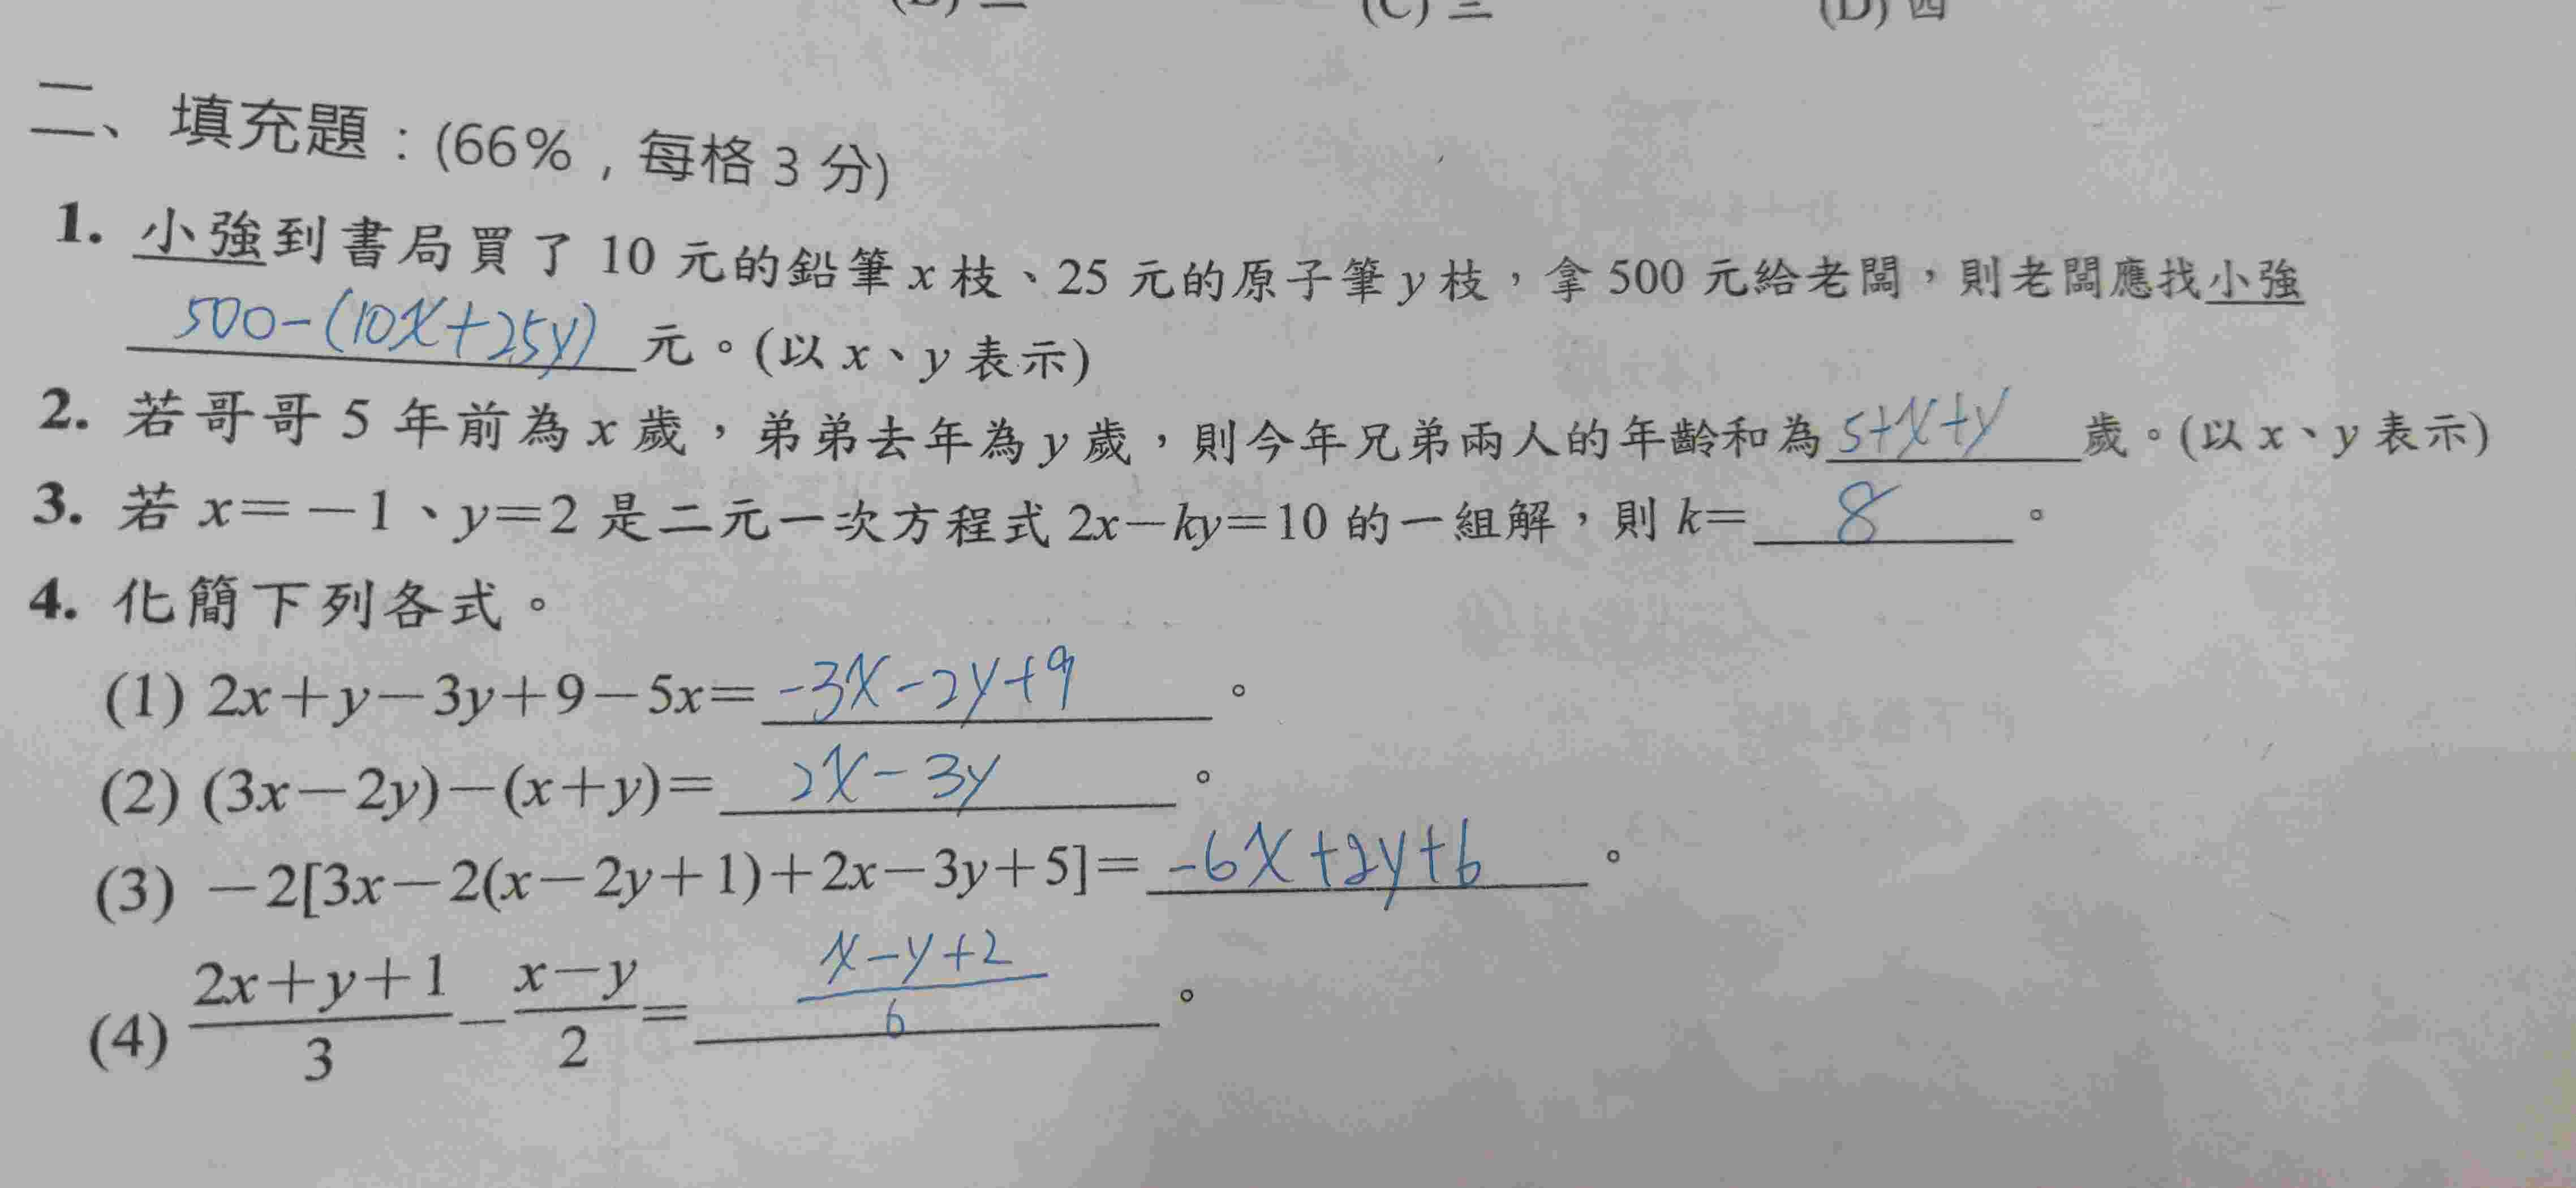 (B) 二 (C) 三 (D) 四
二、填充題：(66%，每格 3 分)
1. 小強到書局買了 10 元的鉛筆 x 枝、25 元的原子筆 y 枝，拿 500 元給老闆，則老闆應找小強
500-(10x+25y) 元。(以 x、y 表示)
2. 若哥哥 5 年前為 x 歲，弟弟去年為 y 歲，則今年兄弟兩人的年齡和為 5+x+y 歲。(以 x、y 表示)
3. 若 x=-1、y=2 是二元一次方程式 2x-ky=10 的一組解，則 k= 8 。
4. 化簡下列各式。
(1) 2x+y-3y+9-5x= -3x-2y+9 。
(2) (3x-2y)-(x+y)= 2x-3y 。
(3) -2[3x-2(x-2y+1)+2x-3y+5]= -6x+2y+6 。
(4) (2x+y+1)/3 - (x-y)/2 = (x-y+2)/6 。